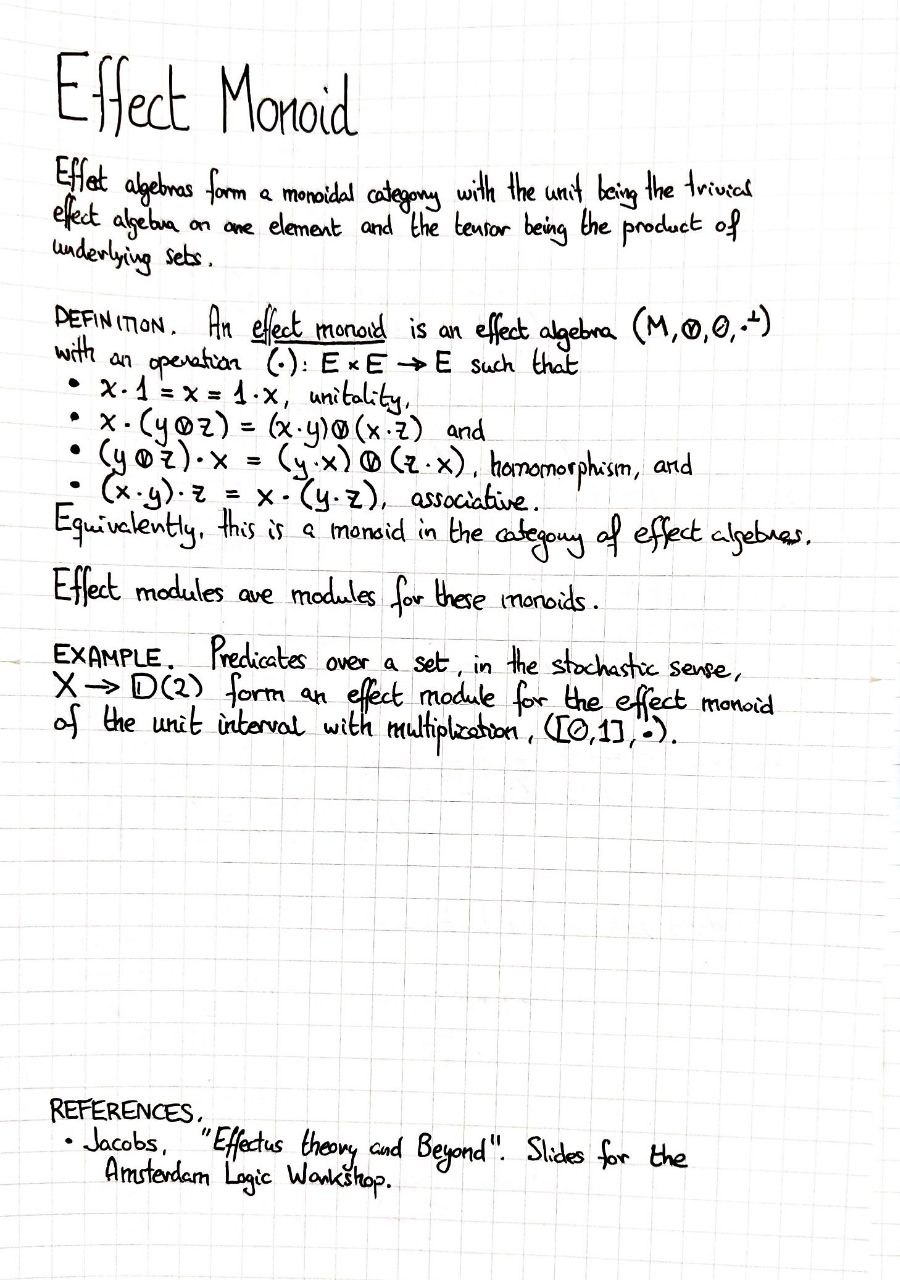 Effect Monoid
Effet algebras form a monoidal category with the unit being the trivial
effect algebra on one element and the tensor being the product of
underlying sets.
DEFINITION. An effect monoid is an effect algebra (M, ⦸, 0, ·⊥)
with an operation (·): E × E → E such that
• x · 1 = x = 1 · x, unitality,
• x · (y ⦸ z) = (x · y) ⦸ (x · z) and
• (y ⦸ z) · x = (y · x) ⦸ (z · x), homomorphism, and
• (x · y) · z = x · (y · z), associative.
Equivalently, this is a monoid in the category of effect algebras.
Effect modules are modules for these monoids.
EXAMPLE. Predicates over a set, in the stochastic sense,
X → D(2) form an effect module for the effect monoid
of the unit interval with multiplication, ([0,1], ·).
REFERENCES.
• Jacobs, "Effectus theory and Beyond". Slides for the
Amsterdam Logic Workshop.